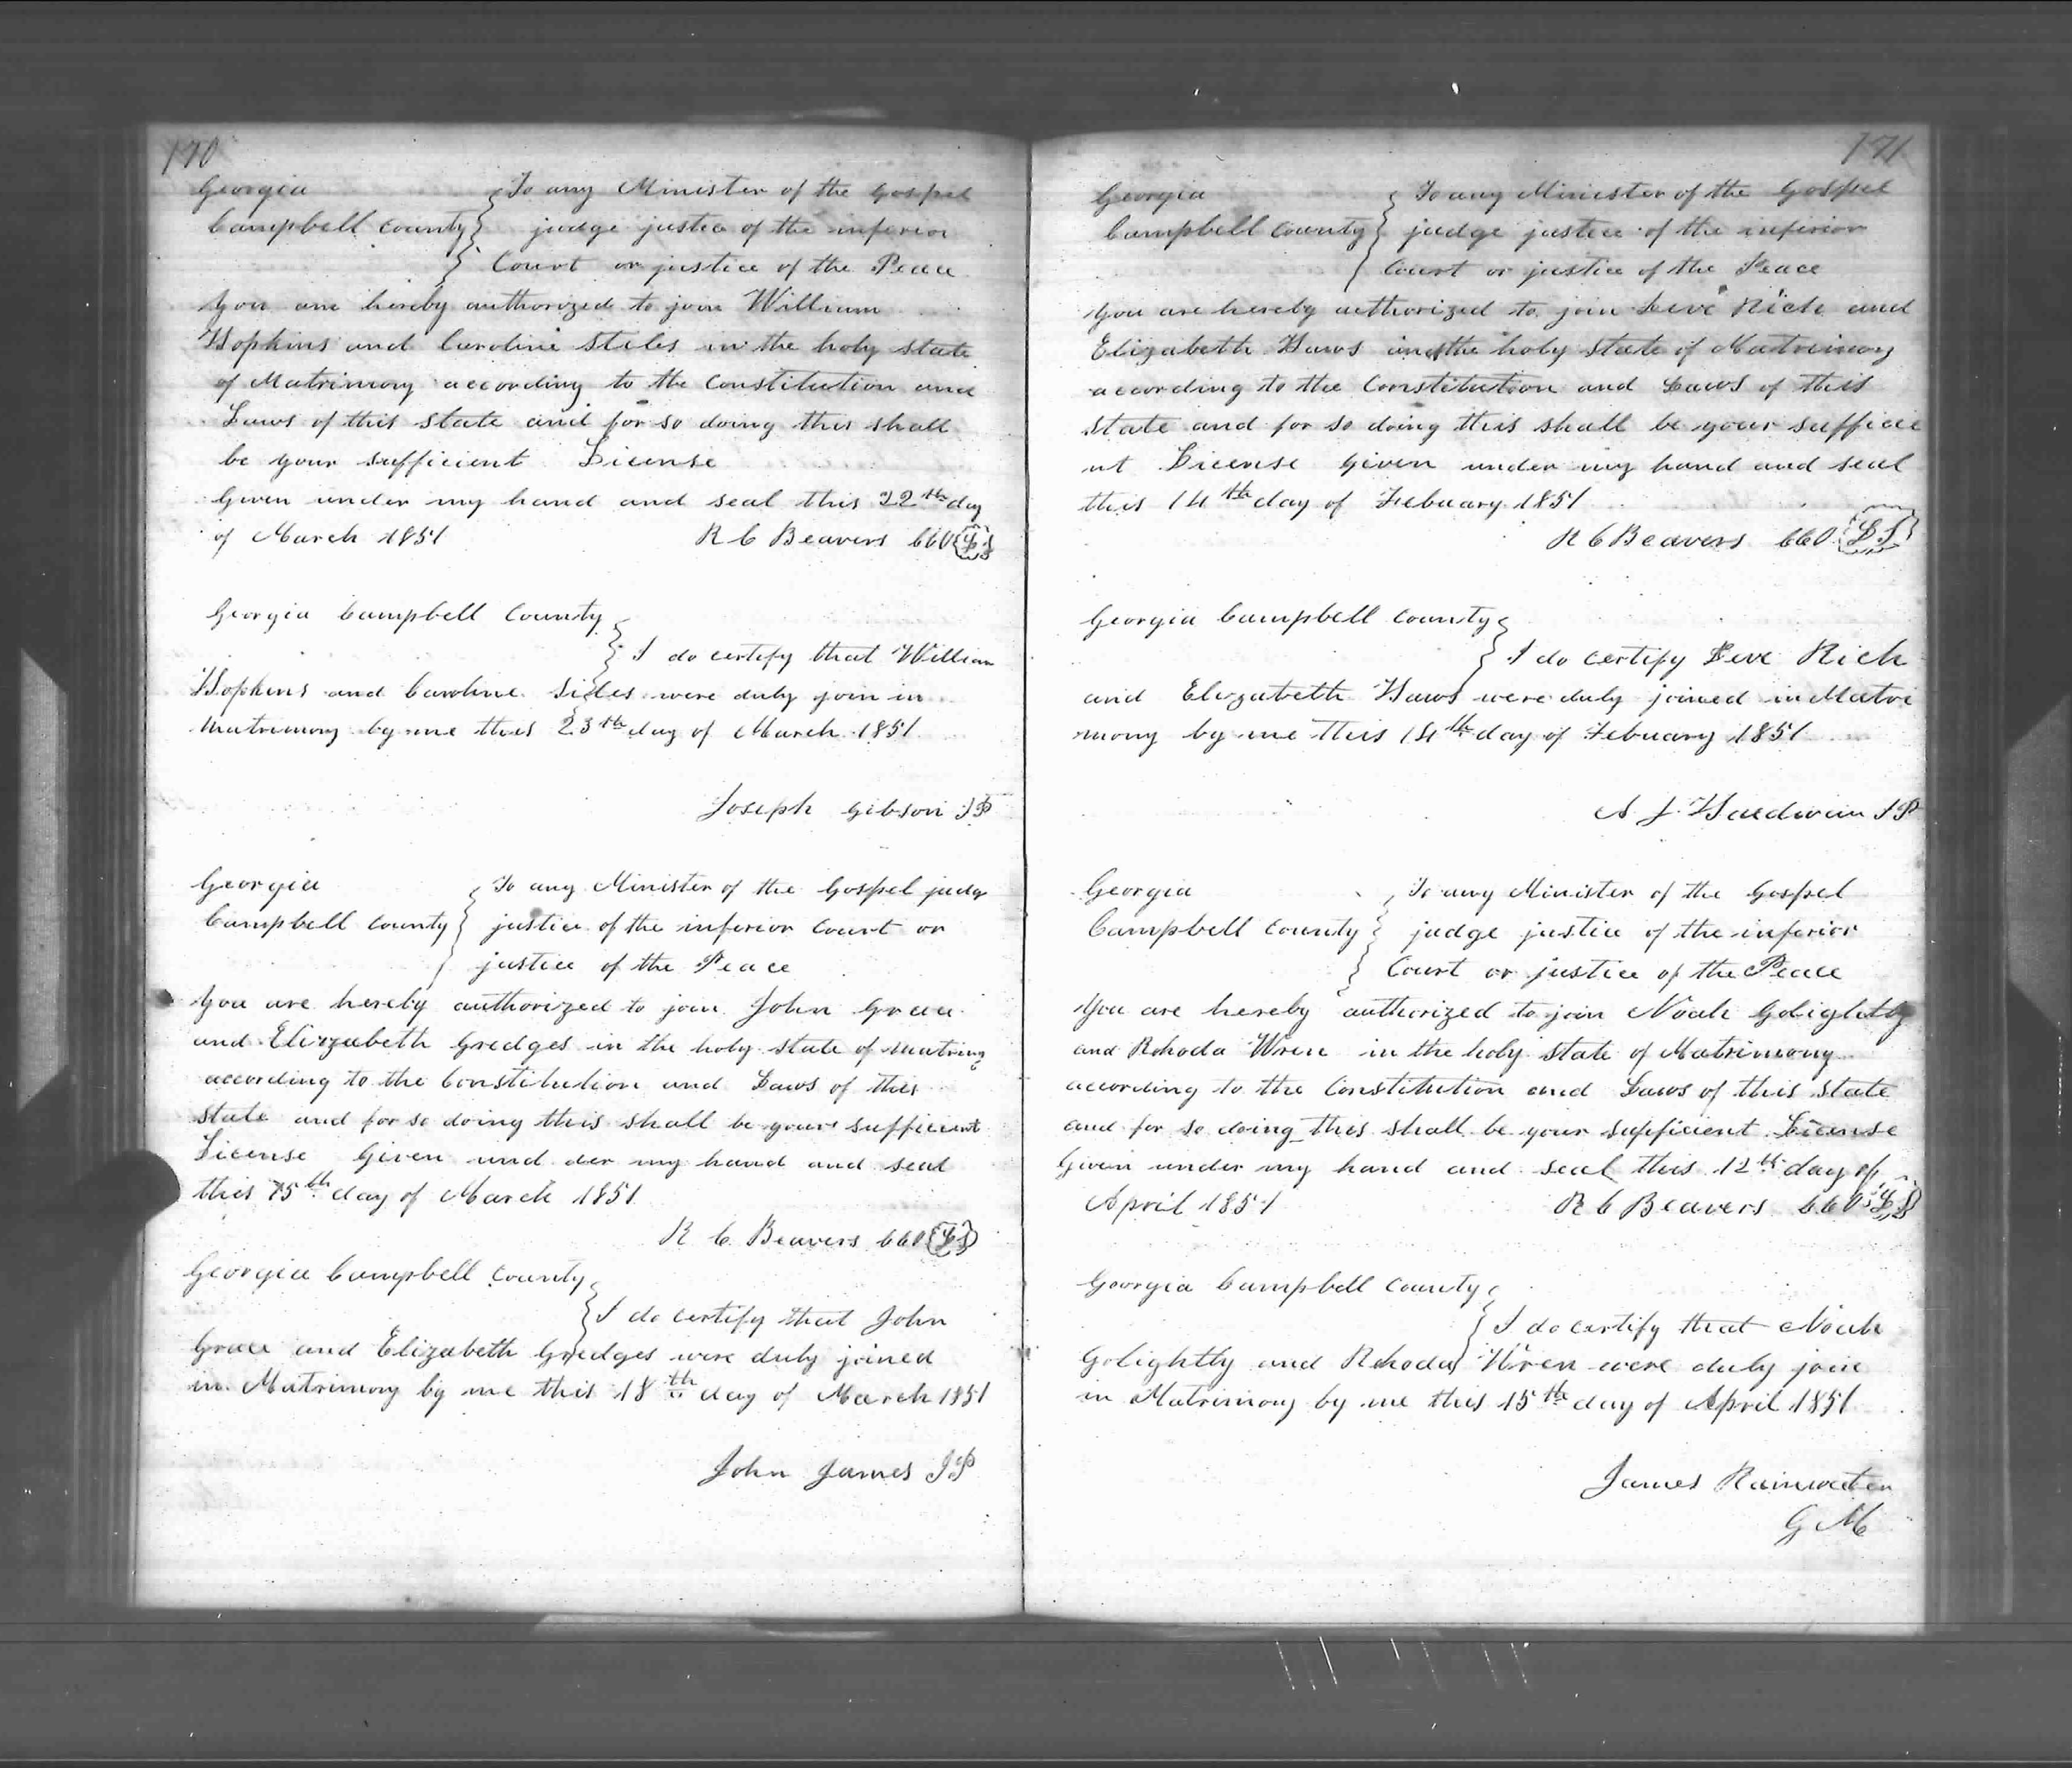 170
Georgia
Campbell County
To any Minister of the Gospel
judge justice of the inferior
Court or justice of the Peace
You are hereby authorized to join William
Hopkins and Caroline Stiles in the holy state
of Matrimony according to the Constitution and
Laws of this state and for so doing this shall
be your sufficient License
Given under my hand and seal this 22th day
of March 1851 R C Beavers CCO LS
Georgia Campbell County
I do certify that William
Hopkins and Caroline Stiles were duly join in
Matrimony by me this 23th day of March 1851
Joseph Gibson JP
Georgia
Campbell County
To any Minister of the Gospel judge
justice of the inferior Court or
justice of the Peace
You are hereby authorized to join John Grace
and Elizabeth Gredges in the holy state of matrimony
according to the Constitution and Laws of this
state and for so doing this shall be your sufficient
License Given und der my hand and seal
this 15th day of March 1851
R C Beavers CCO LS
Georgia Campbell County
I do certify that John
Grace and Elizabeth Gredges were duly joined
in Matrimony by me this 18th day of March 1851
John James JP
171
Georgia
Campbell County
To any Minister of the Gospel
judge justice of the inferior
Court or justice of the Peace
You are hereby authorized to join Levi Rich and
Elizabeth Haws in the holy state of Matrimony
according to the Constitution and Laws of this
State and for so doing this shall be your sufficie
nt License Given under my hand and seal
this 14th day of Febuary 1851
R C Beavers CCO LS
Georgia Campbell County
I do certify Levi Rich
and Elizabeth Haws were duly joined in Matri
mony by me this 14th day of Febuary 1851
A J JP
Georgia
Campbell County
To any Minister of the Gospel
judge justice of the inferior
Court or justice of the Peace
You are hereby authorized to join Noah Golightly
and Rhoda Wren in the holy state of Matrimony
according to the Constitution and Laws of this State
and for so doing this shall be your sufficient License
Given under my hand and seal this 12th day of
April 1851 R C Beavers CCO LS
Georgia Campbell County
I do certify that Noah
Golightly and Rhoda Wren were duly join
in Matrimony by me this 15th day of April 1851
James Rainwater
G M